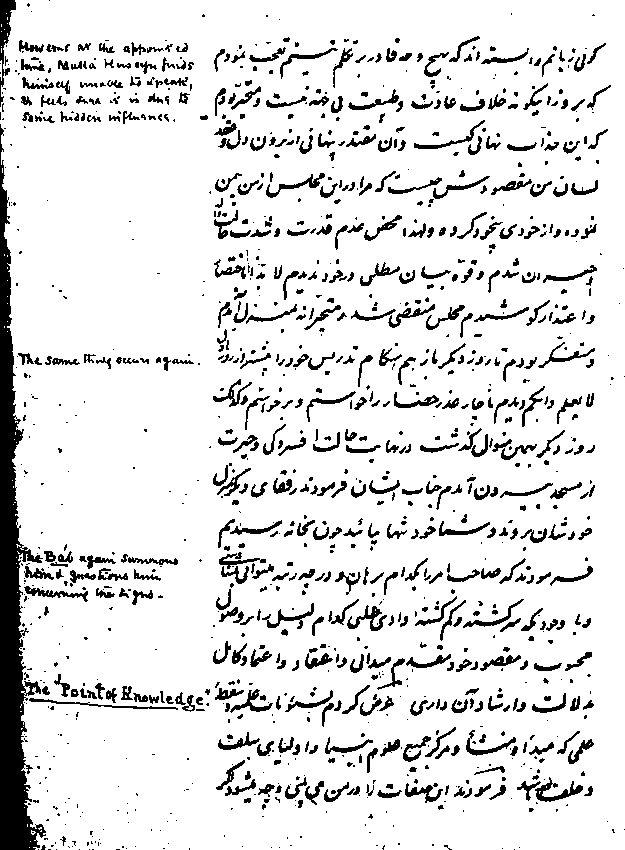 However at the appointed
time, Mulla Huseyn finds
himself unable to speak,
& feels sure it is due to
some hidden influence.
The same thing occurs again.
The Báb again summons
him & questions him
concerning the signs.
The "Point of Knowledge".
کوئی زبانم را بسته‌اند که بهیچ وجه قادر بر تکلم نیستم تعجب نمودم
که بروز اینگونه خلاف عادت و طبیعت بی جهة نیست و متحیر بودم
که این جذاب نهانی کیست و آن مقتدر پنهانی از برون دل و
لسان من مقصودش چیست که مرا در این مجلس از من بمن
نموده و از خودی بیخود کرده ولهذا محض عدم قدرت و شدت حالت
حیران شدم و قوه بیان مطلبی در خود ندیدم لابد
و اعتذار کوشیدم مجلس منقضی شد و متحیرانه بمنزل آمدم
و متفکر بودم تا روز دیگر باز بهم هنگام تدریس خود را
لایعلم و ابکم دیدم ناچار عذر حضار را خواستم و برخواستم و کذلک
روز دیگر بهمین منوال گذشت در نهایت حالت افسردگی و حیرت
از مسجد بیرون آمدم جناب ایشان فرمودند رفقای دیگر بمنزل
خودشان بروند و شما خود تنها بیائید چون بخانه رسیدیم
فرمودند که صاحب امر را بکدام برهان و در چه رتبه میتوانی
و با وجودیکه سرگشته و گم گشته وادی طلبی کدام دلیل را بر وصول
محبوب و مقصود خود مقدم میدانی و اعتقاد و اعتماد کامل
بدلالت و ارشاد آن داری عرض کردم بشئونات علمیه و نقطه
علمی که مبدأ و منشأ و مرکز جمیع علوم انبیا و اولیای سلف
و خلف باشد فرمودند این صفات را در من می بینی و چه میشود اگر